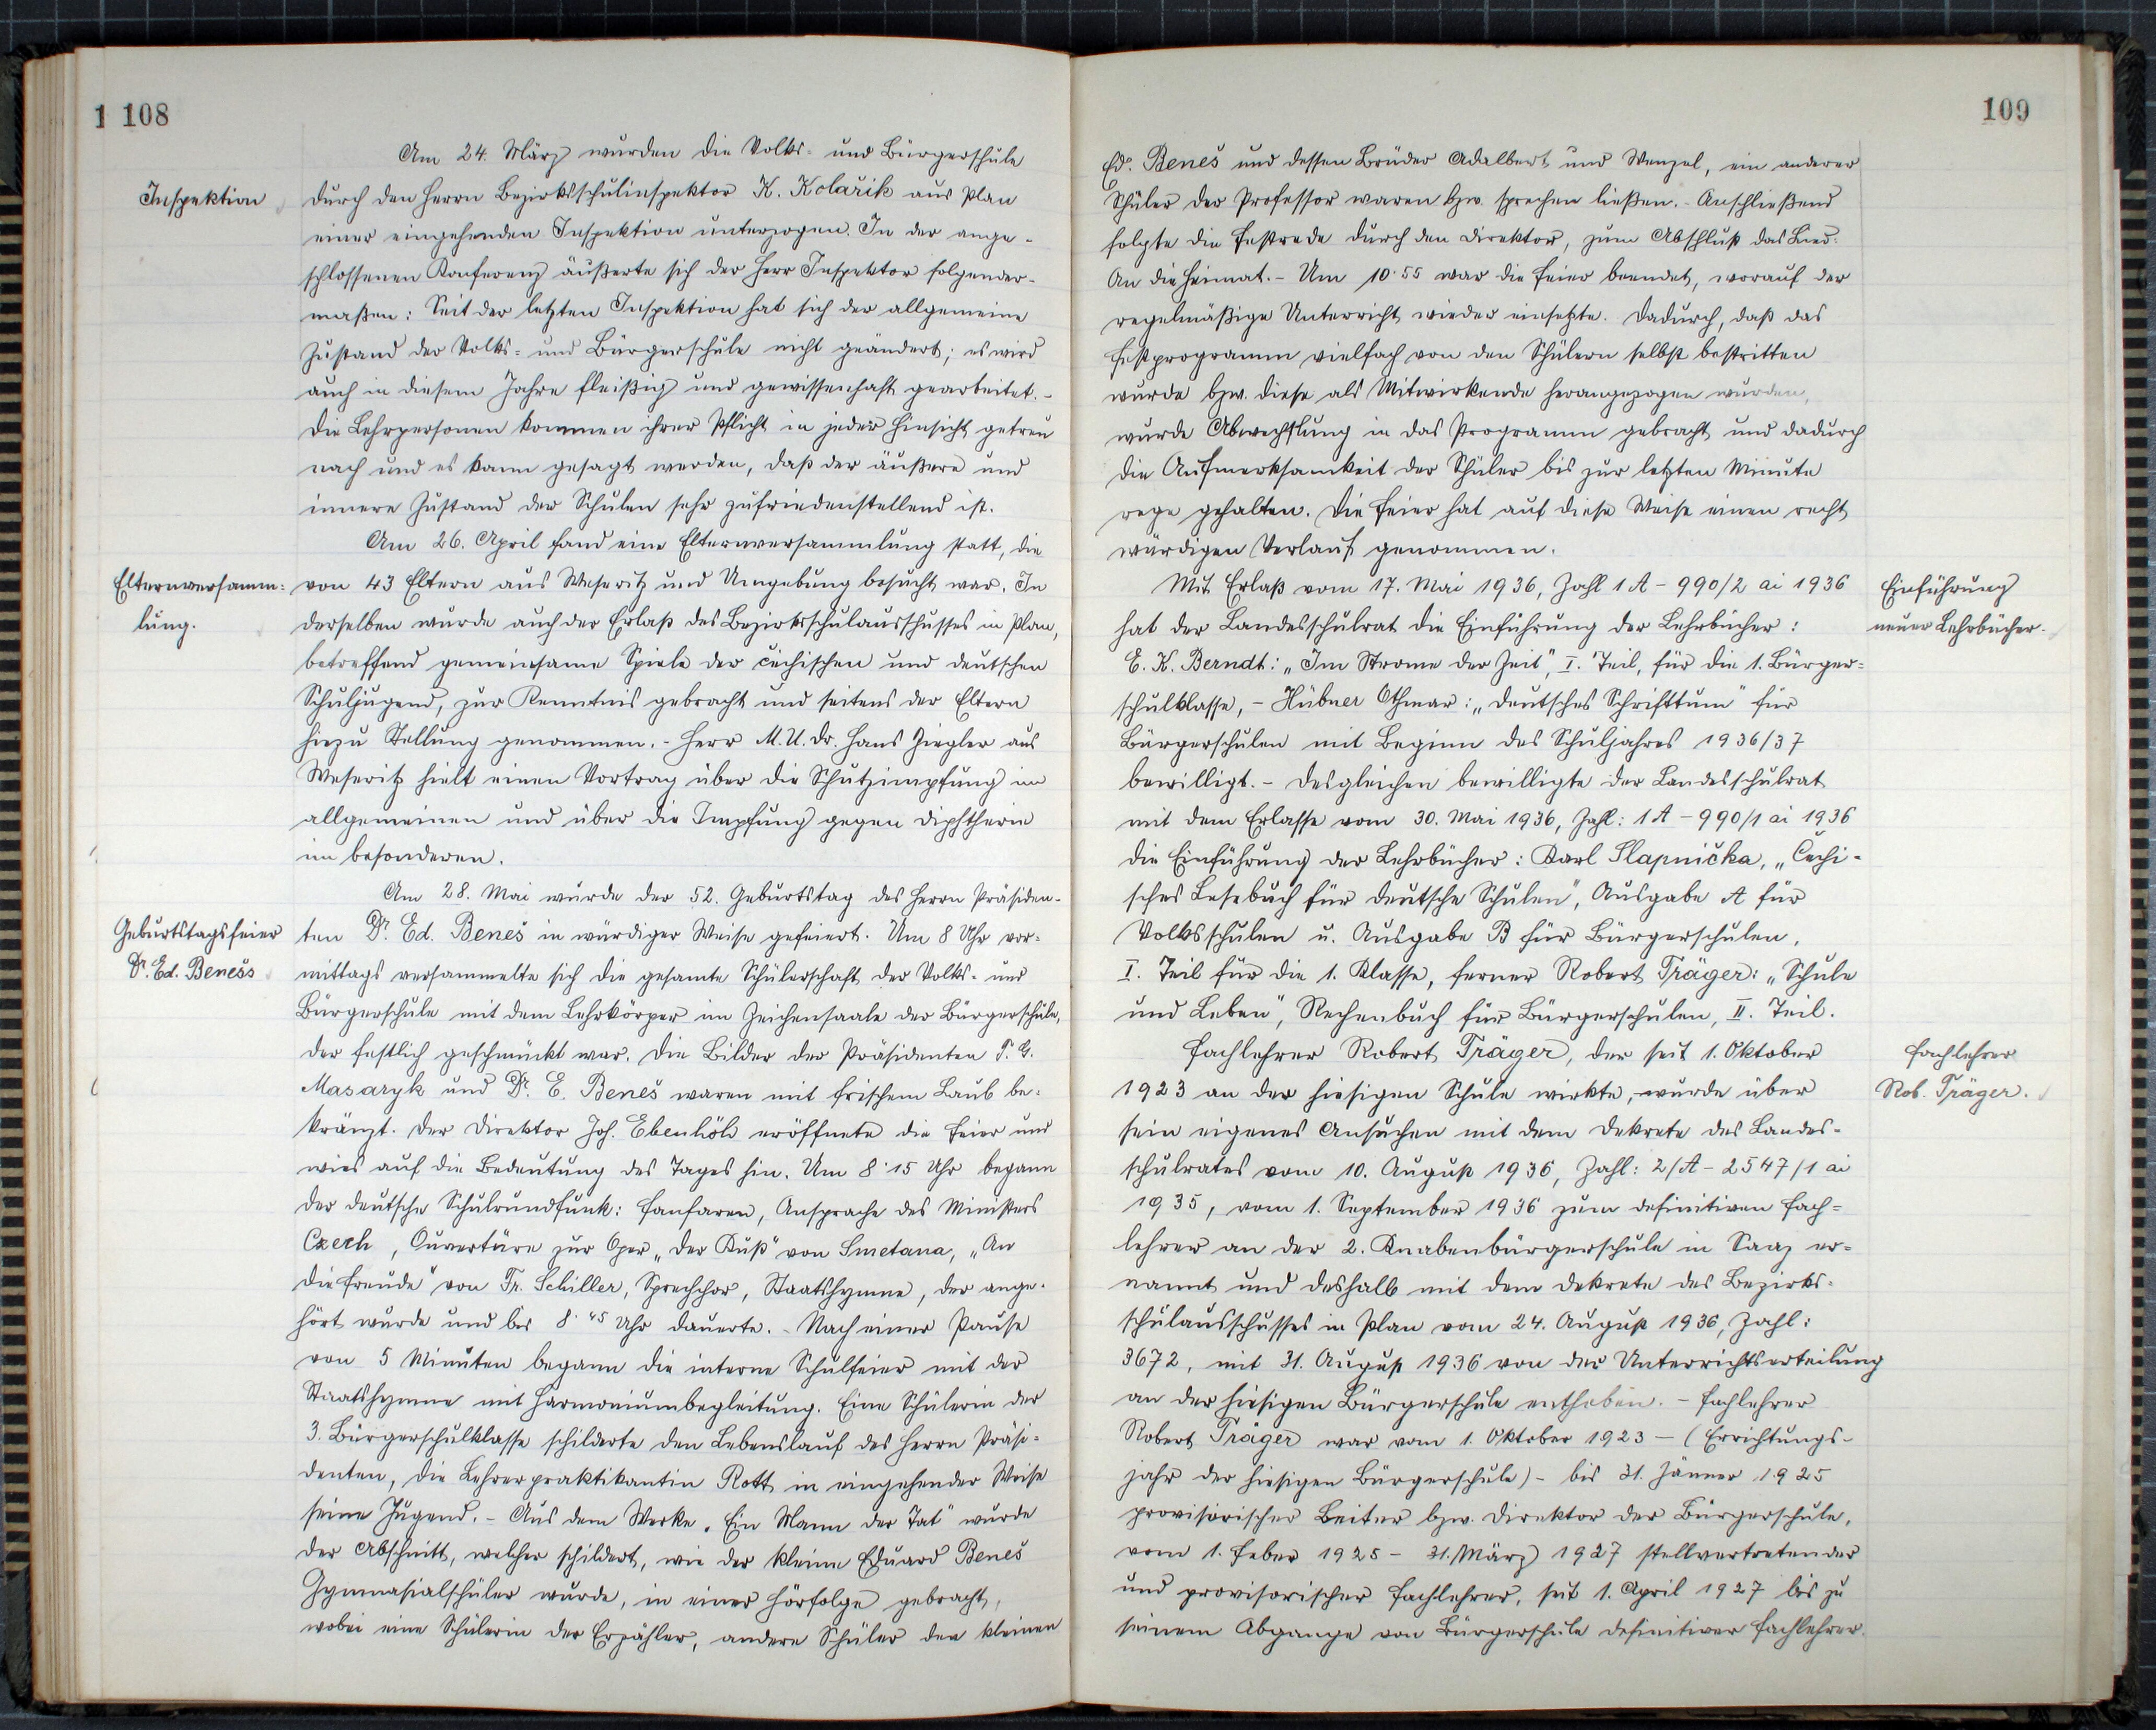 1 108
Am 24. März wurden die Volks- und Bürgerschule
Inspektion
durch den Herrn Bezirksschulinspektor K. Kolařik aus Plan
einer eingehenden Inspektion unterzogen. In der ange-
schlossenen Konferenz äußerte sich der Herr Inspektor folgender-
maßen: Seit der letzten Inspektion hat sich der allgemeine
Zustand der Volks- und Bürgerschule nicht geändert; es wird
auch in diesem Jahre fleißig und gewissenhaft gearbeitet. -
Die Lehrpersonen kommen ihrer Pflicht in jeder Hinsicht getreu
nach und es kann gesagt werden, daß der äußere und
innere Zustand der Schulen sehr zufriedenstellend ist.
Am 26. April fand eine Elternversammlung statt, die
Elternversamm-
lung.
von 43 Eltern aus Weseritz und Umgebung besucht war. In
derselben wurde auch der Erlaß des Bezirksschulausschusses in Plan,
betreffend gemeinsame Spiele der čechischen und deutschen
Schuljugend, zur Kenntnis gebracht und seitens der Eltern
hiezu Stellung genommen. - Herr M.U.Dr. Hans Ziegler aus
Weseritz hielt einen Vortrag über die Schutzimpfung im
allgemeinen und über die Impfung gegen Diphtherie
im besonderen.
Am 28. Mai wurde der 52. Geburtstag des Herrn Präsiden-
Geburtstagsfeier
Dr. Ed. Benešs
ten Dr. Ed. Beneš in würdiger Weise gefeiert. Um 8 Uhr vor-
mittags versammelte sich die gesamte Schülerschaft der Volks- und
Bürgerschule mit dem Lehrkörper im Zeichensaale der Bürgerschule,
der festlich geschmückt war. Die Bilder der Präsidenten T. G.
Masaryk und Dr. E. Beneš waren mit frischem Laub be-
kränzt. Der Direktor Joh. Ebenhöh eröffnete die Feier und
wies auf die Bedeutung des Tages hin. Um 8·15 Uhr begann
der deutsche Schulrundfunk: Fanfaren, Ansprache des Ministers
Czech, Ouvertüre zur Oper „Der Kuß" von Smetana, „An
die Freude" von Fr. Schiller, Sprechchor, Staatshymne, der ange-
hört wurde und bis 8·45 Uhr dauerte. - Nach einer Pause
von 5 Minuten begann die interne Schulfeier mit der
Staatshymne mit Harmoniumbegleitung. Eine Schülerin der
3. Bürgerschulklasse schilderte den Lebenslauf des Herrn Präsi-
denten, die Lehrerpraktikantin Rott in eingehender Weise
seine Jugend. - Aus dem Werke „Ein Mann der Tat" wurde
der Abschnitt, welcher schildert, wie der kleine Eduard Beneš
Gymnasialschüler wurde, in einer Hörfolge gebracht,
wobei eine Schülerin der Erzähler, andere Schüler den kleinen
109
Ed. Beneš und dessen Brüder Adalbert und Wenzel, ein anderer
Schüler der Professor waren bzw. sprechen ließen. - Anschließend
folgte die Festrede durch den Direktor, zum Abschluß das Lied:
An die Heimat. - Um 10·55 war die Feier beendet, worauf der
regelmäßige Unterricht wieder einsetzte. Dadurch, daß das
Festprogramm vielfach von den Schülern selbst bestritten
wurde bzw. diese als Mitwirkende herangezogen wurden,
wurde Abwechslung in das Programm gebracht und dadurch
die Aufmerksamkeit der Schüler bis zur letzten Minute
rege gehalten. Die Feier hat auf diese Weise einen recht
würdigen Verlauf genommen.
Mit Erlaß vom 17. Mai 1936, Zahl 1 A - 990/2 ai 1936
Einführung
neuer Lehrbücher.
hat der Landesschulrat die Einführung der Lehrbücher:
E. K. Berndt: „Im Strome der Zeit", I. Teil, für die 1. Bürger-
schulklasse, - Hübner Othmar: „Deutsches Schrifttum" für
Bürgerschulen mit Beginn des Schuljahres 1936/37
bewilligt. - Desgleichen bewilligte der Landesschulrat
mit dem Erlasse vom 30. Mai 1936, Zahl: 1 A - 990/1 ai 1936
die Einführung der Lehrbücher: Karl Slapnička, „Čechi-
sches Lesebuch für deutsche Schulen", Ausgabe A für
Volksschulen u. Ausgabe B für Bürgerschulen,
I. Teil für die 1. Klasse, ferner Robert Träger: „Schule
und Leben", Rechenbuch für Bürgerschulen, II. Teil.
Fachlehrer Robert Träger, der seit 1. Oktober
Fachlehrer
Rob. Träger.
1923 an der hiesigen Schule wirkte, wurde über
sein eigenes Ansuchen mit dem Dekrete des Landes-
schulrates vom 10. August 1936, Zahl: 2/A - 2547/1 ai
1935, vom 1. September 1936 zum definitiven Fach-
lehrer an der 2. Knabenbürgerschule in Saaz er-
nannt und deshalb mit dem Dekrete des Bezirks-
schulausschusses in Plan vom 24. August 1936, Zahl:
3672, mit 31. August 1936 von der Unterrichtserteilung
an der hiesigen Bürgerschule enthoben. - Fachlehrer
Robert Träger war vom 1. Oktober 1923 - (Errichtungs-
jahr der hiesigen Bürgerschule) - bis 31. Jänner 1925
provisorischer Leiter bzw. Direktor der Bürgerschule,
vom 1. Feber 1925 - 31. März 1927 stellvertretender
und provisorischer Fachlehrer, seit 1. April 1927 bis zu
seinem Abgange von Bürgerschule definitiver Fachlehrer.